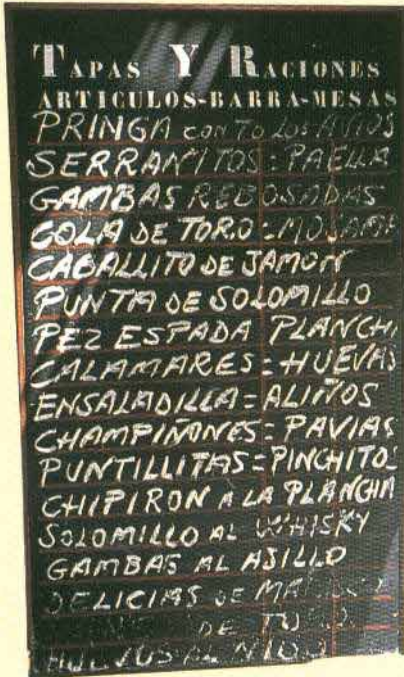 TAPAS Y RACIONES
ARTICULOS-BARRA-MESAS
PRINGA CON TO LOS AVIOS
SERRANITOS = PAELLA
GAMBAS REBOSADAS
COLA DE TORO -
CABALLITO DE JAMON
PUNTA DE SOLOMILLO
PEZ ESPADA PLANCH
CALAMARES = HUEVAS
ENSALADILLA = ALIÑOS
CHAMPIÑONES = PAVIAS
PUNTILLITAS = PINCHITOS
CHIPIRON A LA PLANCHA
SOLOMILLO AL WHISKY
GAMBAS AL AJILLO
DELICIAS DE
DE